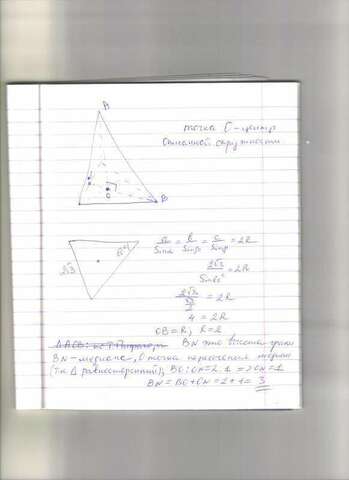 A
точка O - центр
Описанной окружности.
O
B
2√3
60°
a/Sinα = b/Sinβ = c/Sinγ = 2R
2√3/Sin60° = 2R
2√3/(√3/2) = 2R
4 = 2R
OB = R; R = 2
ΔAOB: по т. Пифагора, BN это высота грани
BN - медиана, O точка пересечения медиан
(т.к. Δ равносторонний); BO:ON = 2:1 => ON = 1
BN = BO + ON = 2 + 1 = 3